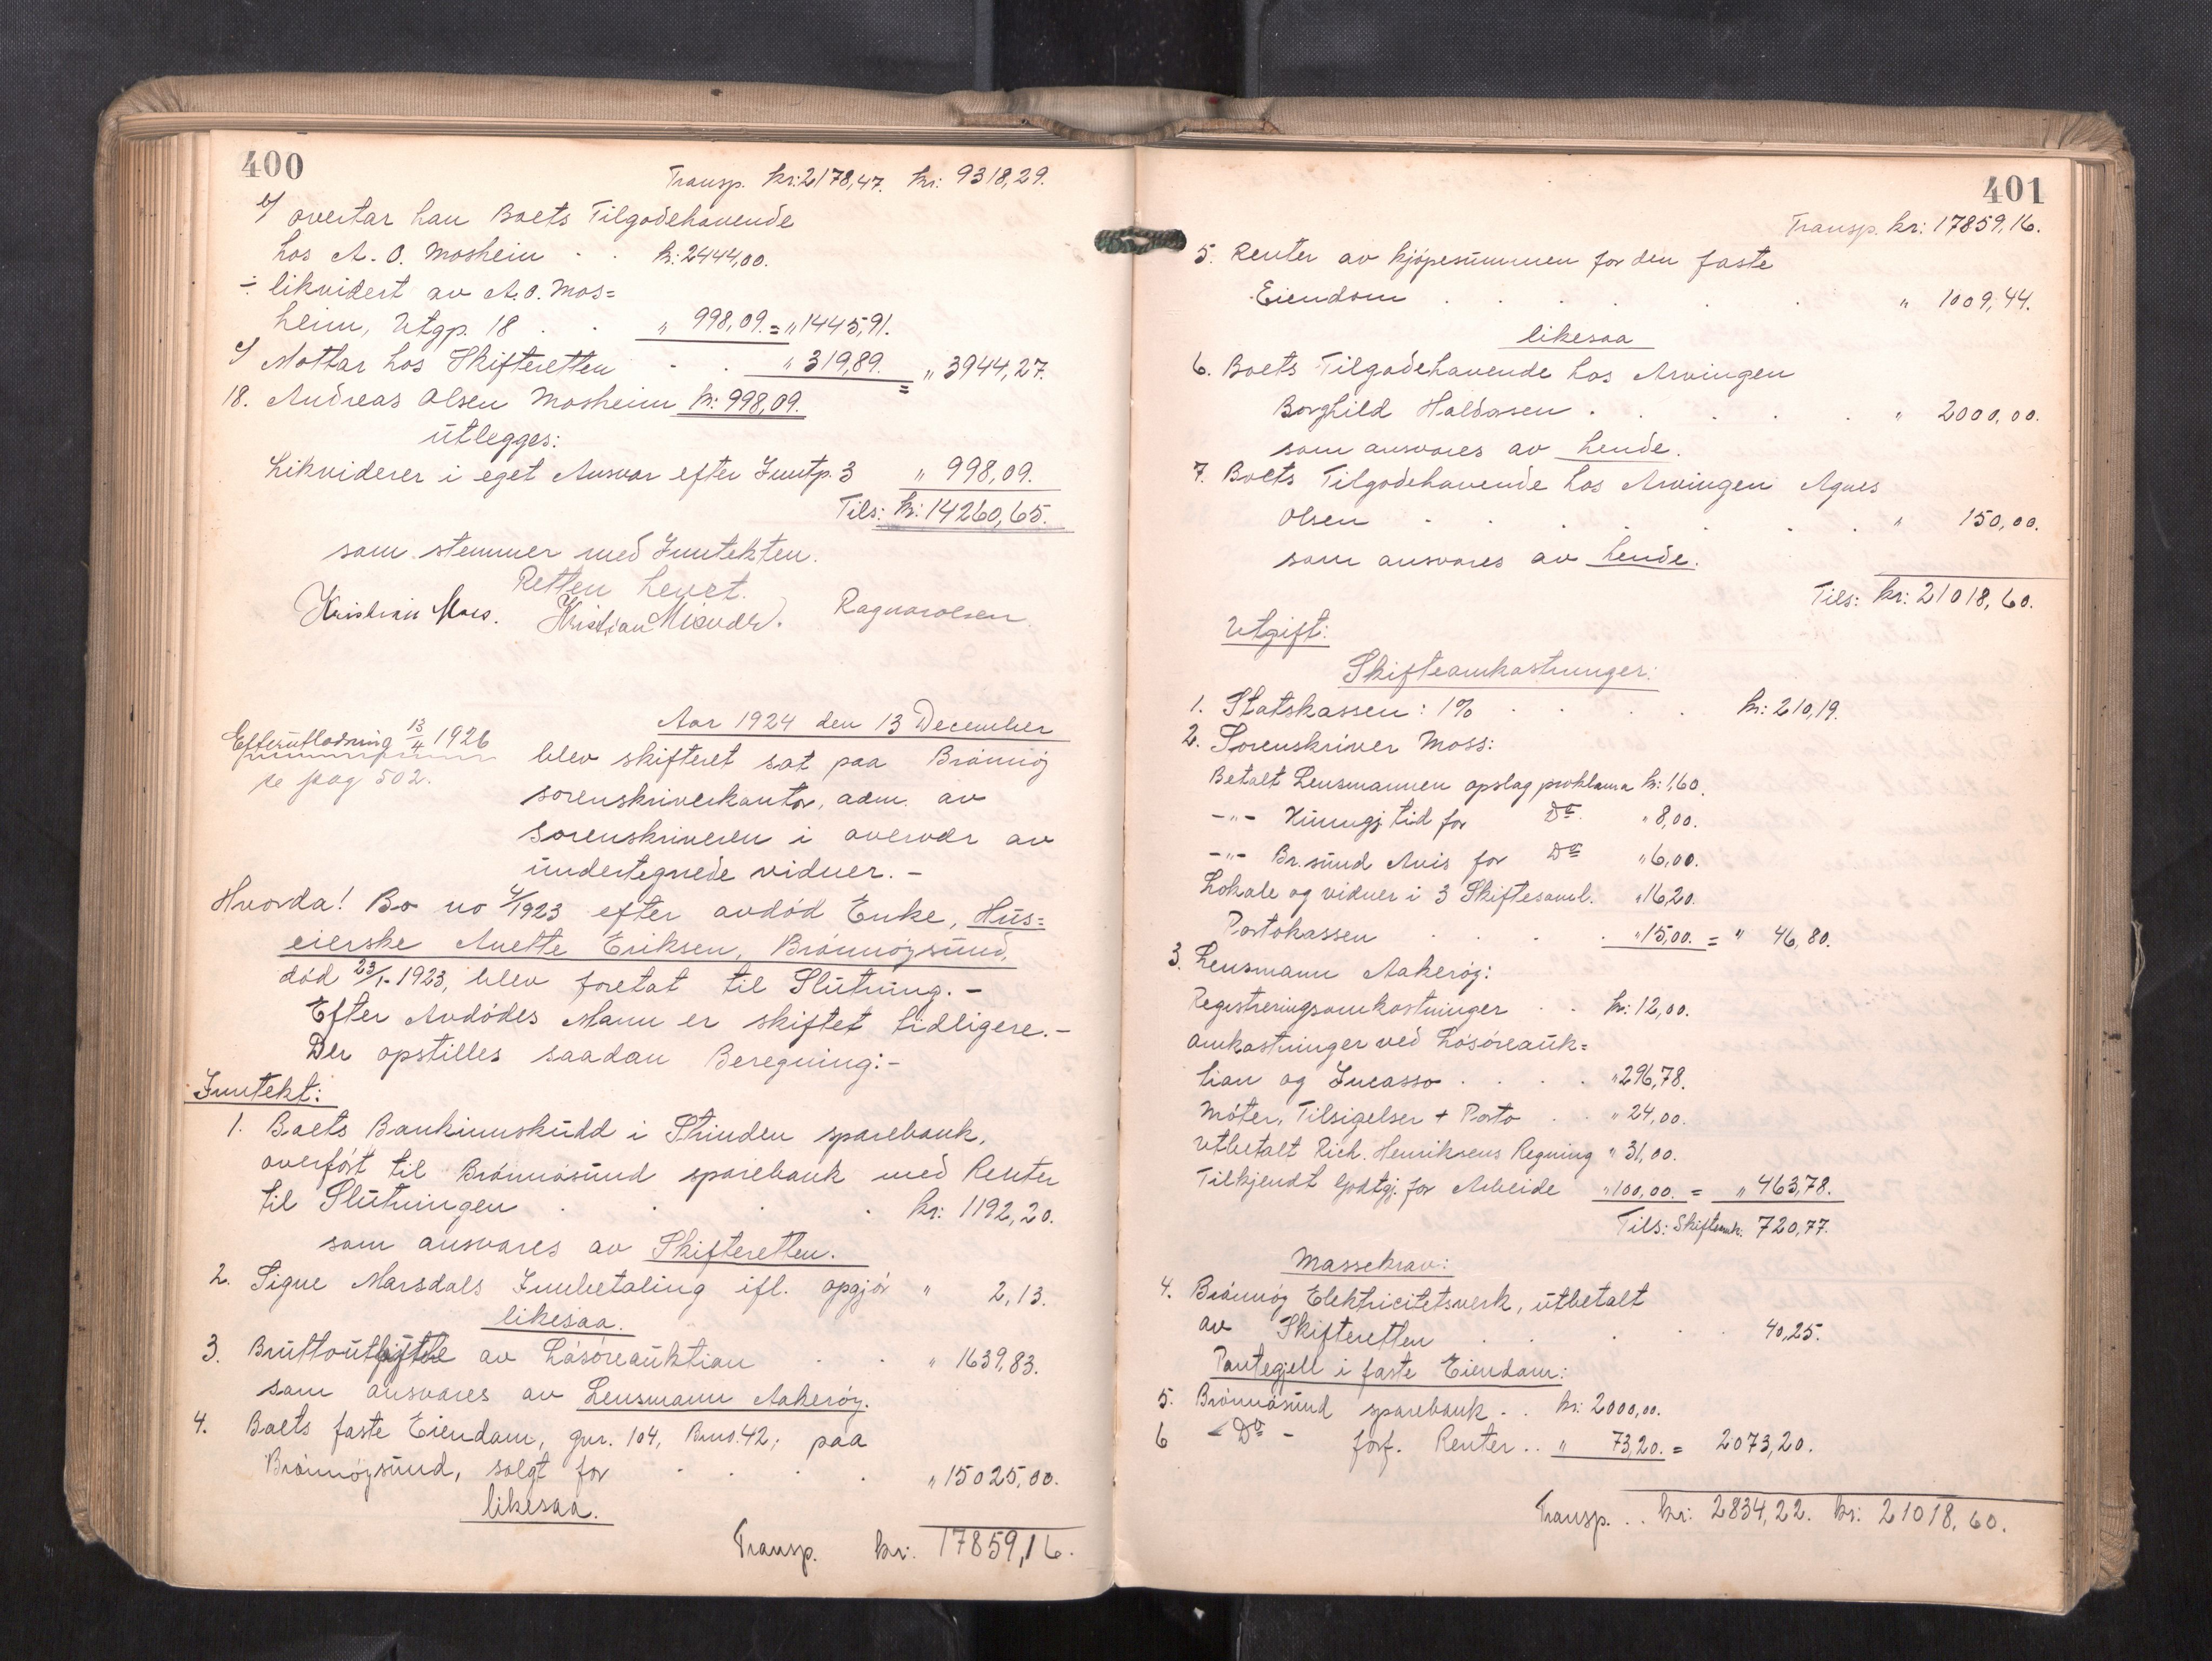 400
Transp. kr: 2178,47. kr: 9318,29.
e/ overtar han Boets Tilgodehavende
hos A. O. Mosheim . . kr: 2444,00.
÷ likvidert av A. O. Mos=
heim, Utgp. 18 . . „ 998,09. = „ 1445,91.
f/ Mottar hos Skifteretten - . „ 319,89. = „ 3944,27.
18. Andreas Olsen Mosheim kr: 998,09.
utlegges:
Likviderer i eget Ansvar efter Inntp. 3 „ 998,09.
Tils: kr: 14260,65.
som stemmer med Inntekten.
Retten hevet.
Kristian Moss. Kristian Ragnar Olsen
Aar 1924 den 13 December
Efterutlodning 13/4 1926
se pag 502.
blev skifteret sat paa Brønnøy
sorenskriverkontor, adm. av
sorenskriveren i overvær av
undertegnede vidner. -
Hvorda! Bo no 4/1923 efter avdød Enke, Hus=
eierske Anette Eriksen, Brønnøysund,
død 23/1- 1923, blev foretat til Slutning. -
Efter Avdødes Mann er skiftet tidligere. -
Der opstilles saadan Beregning: -
Inntekt:
1. Boets Bankinnskudd i Strinden sparebank,
overført til Brønnøsund sparebank med Renter
til Slutningen . . . . kr: 1192,20.
som ansvares av Skifteretten.
2. Signe Marsdals Innbetaling ifl. opgjør „ 2,13.
likesaa.
3. Bruttoutbytte av Løsøreauktion . . „ 1639,83.
som ansvares av Lensmann Aakerøy.
4. Boets faste Eiendom, gnr. 104, Brno. 42, paa
Brønnøysund, solgt for - . . . „ 15025,00.
likesaa.
Transp. kr: 17859,16.
401
Transp. kr: 17859,16.
5. Renter av kjøpesummen for den faste
Eiendom . . . . . „ 1009,44.
likesaa
6. Boets Tilgodehavende hos Arvingen
Borghild Haldorsen . . . . . „ 2000,00.
som ansvares av hende.
7. Boets Tilgodehavende hos Arvingen Agnes
Olsen . . . . . . „ 150,00.
som ansvares av hende.
Tils: kr: 21018,60.
Utgift:
Skifteomkostninger:
1. Statskassen: 1% . . . . kr: 210,19.
2. Sorenskriver Moss:
Betalt Lensmannen opslag proklama kr: 1,60.
-„- Kunngj. tid for Do. „ 8,00.
-„- Br.sund Avis for Do „ 6,00.
Lokale og vidner i 3 Skiftesaml. „ 16,20.
Portokassen . . . . „ 15,00. = „ 46,80.
3. Lensmann Aakerøy:
Registreringsomkostninger . . kr: 12,00.
omkostninger ved Løsøreauk=
tion og Incasso . . . . „ 296,78.
Møter, Tilsigelser + Porto . . „ 24,00.
Utbetalt Rich. Henriksens Regning „ 31,00.
Tilkjendt Godtgj. for Arbeide „ 100,00. = „ 463,78.
Tils: Skifteomk. 720,77.
Massekrav:
4. Brønnøy Elektricitetsverk, utbetalt
av Skifteretten . . . . . 40,25.
Pantegjell i faste Eiendom:
5. Brønnøsund sparebank . . kr: 2000,00.
6 - Do - forf. Renter . . „ 73,20. = 2073,20.
Transp. . . kr: 2834,22. kr: 21018,60.